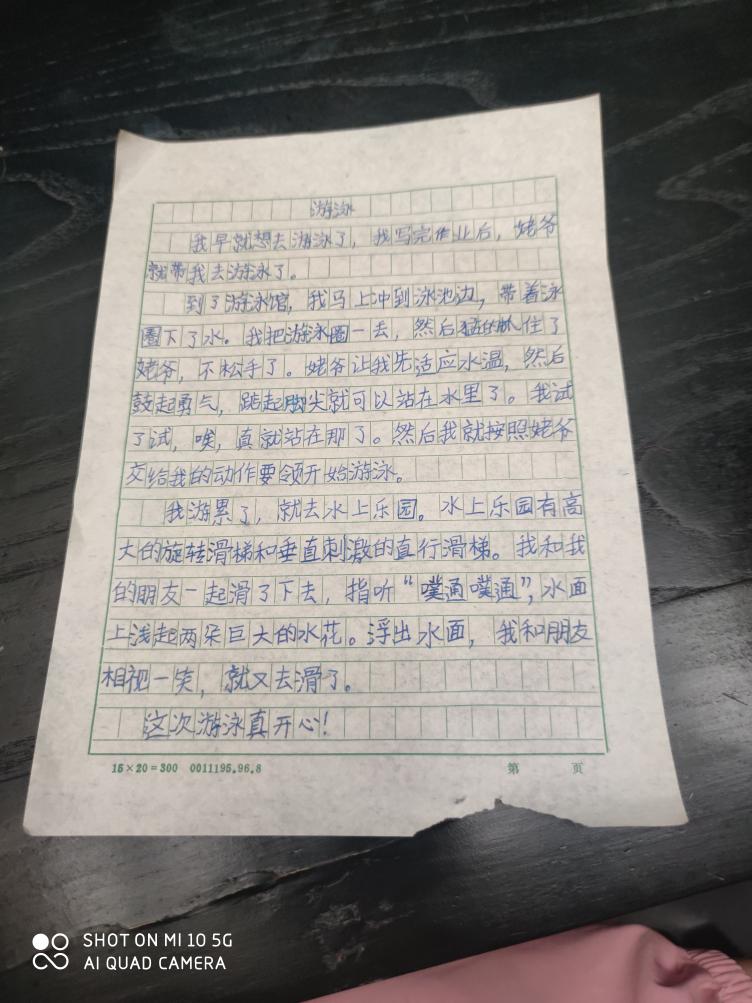 游泳
我早就想去游泳了，我写完作业后，姥爷
就带我去游泳了。
到了游泳馆，我马上冲到泳池边，带着泳
圈下了水。我把游泳圈一丢，然后猛的抓住了
姥爷，不松手了。姥爷让我先适应水温，然后
鼓起勇气，踮起脚尖就可以站在水里了。我试
了试，唉，真就站在那了。然后我就按照姥爷
交给我的动作要领开始游泳。
我游累了，就去水上乐园。水上乐园有高
大的旋转滑梯和垂直刺激的直行滑梯。我和我
的朋友一起滑了下去，指听“噗通噗通”，水面
上浅起两朵巨大的水花。浮出水面，我和朋友
相视一笑，就又去滑了。
这次游泳真开心！
15×20=300 0011195.96.8 第 页
SHOT ON MI 10 5G
AI QUAD CAMERA